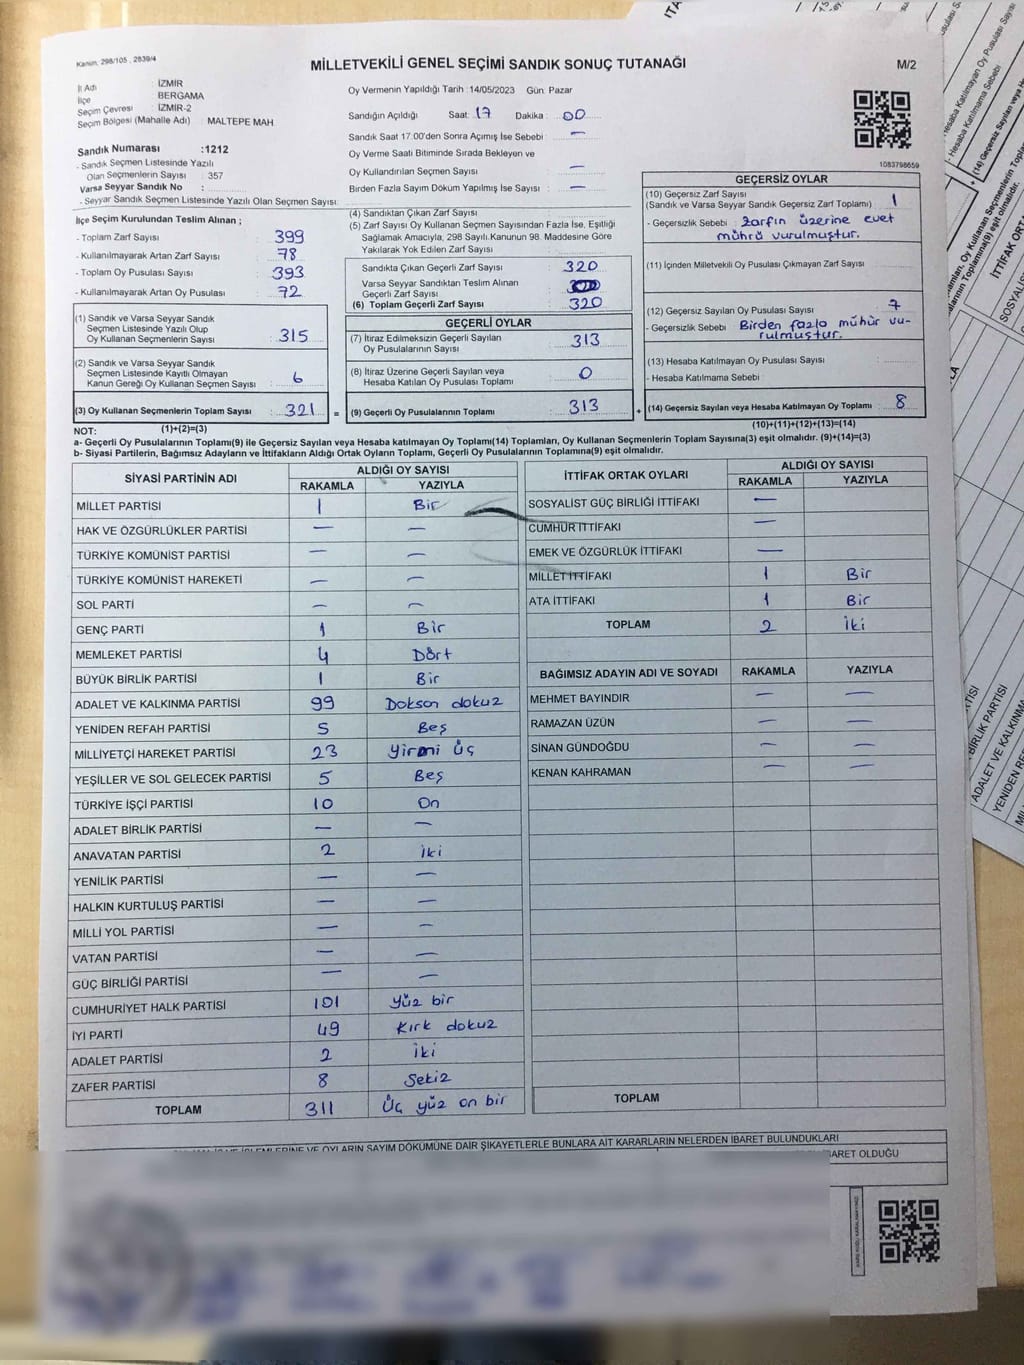 Kanun, 298/105 , 2839/4
MİLLETVEKİLİ GENEL SEÇİMİ SANDIK SONUÇ TUTANAĞI
M/2
İl Adı : İZMİR
İlçe : BERGAMA
Seçim Çevresi : İZMİR-2
Seçim Bölgesi (Mahalle Adı) : MALTEPE MAH.
Sandık Numarası :1212
- Sandık Seçmen Listesinde Yazılı
Olan Seçmenlerin Sayısı : 357
Varsa Seyyar Sandık No :
- Seyyar Sandık Seçmen Listesinde Yazılı Olan Seçmen Sayısı:
Oy Vermenin Yapıldığı Tarih :14/05/2023 Gün: Pazar
Sandığın Açıldığı Saat: 17 Dakika : 00
Sandık Saat 17.00'den Sonra Açımış İse Sebebi : —
Oy Verme Saati Bitiminde Sırada Bekleyen ve
Oy Kullandırılan Seçmen Sayısı : —
Birden Fazla Sayım Döküm Yapılmış İse Sayısı : —
1083798659
İlçe Seçim Kurulundan Teslim Alınan ;
- Toplam Zarf Sayısı : 399
- Kullanılmayarak Artan Zarf Sayısı : 78
- Toplam Oy Pusulası Sayısı : 393
- Kullanılmayarak Artan Oy Pusulası : 72
(1) Sandık ve Varsa Seyyar Sandık
Seçmen Listesinde Yazılı Olup
Oy Kullanan Seçmenlerin Sayısı : 315
(2) Sandık ve Varsa Seyyar Sandık
Seçmen Listesinde Kayıtlı Olmayan
Kanun Gereği Oy Kullanan Seçmen Sayısı : 6
(3) Oy Kullanan Seçmenlerin Toplam Sayısı : 321 =
(4) Sandıktan Çıkan Zarf Sayısı :
(5) Zarf Sayısı Oy Kullanan Seçmen Sayısından Fazla İse, Eşitliği
Sağlamak Amacıyla, 298 Sayılı Kanunun 98. Maddesine Göre
Yakılarak Yok Edilen Zarf Sayısı :
Sandıkta Çıkan Geçerli Zarf Sayısı : 320
Varsa Seyyar Sandıktan Teslim Alınan
Geçerli Zarf Sayısı :
(6) Toplam Geçerli Zarf Sayısı : 320
GEÇERLİ OYLAR
(7) İtiraz Edilmeksizin Geçerli Sayılan
Oy Pusulalarının Sayısı : 313
(8) İtiraz Üzerine Geçerli Sayılan veya
Hesaba Katılan Oy Pusulası Toplamı : 0
(9) Geçerli Oy Pusulalarının Toplamı : 313 +
GEÇERSİZ OYLAR
(10) Geçersiz Zarf Sayısı
(Sandık ve Varsa Seyyar Sandık Geçersiz Zarf Toplamı) : 1
- Geçersizlik Sebebi : Zarfın üzerine evet
mührü vurulmuştur.
(11) İçinden Milletvekili Oy Pusulası Çıkmayan Zarf Sayısı :
(12) Geçersiz Sayılan Oy Pusulası Sayısı : 7
- Geçersizlik Sebebi : Birden fazla mühür vu-
rulmuştur.
(13) Hesaba Katılmayan Oy Pusulası Sayısı :
- Hesaba Katılmama Sebebi :
(14) Geçersiz Sayılan veya Hesaba Katılmayan Oy Toplamı : 8
NOT: (1)+(2)=(3)
(10)+(11)+(12)+(13)=(14)
a- Geçerli Oy Pusulalarının Toplamı(9) ile Geçersiz Sayılan veya Hesaba katılmayan Oy Toplamı(14) Toplamları, Oy Kullanan Seçmenlerin Toplam Sayısına(3) eşit olmalıdır. (9)+(14)=(3)
b- Siyasi Partilerin, Bağımsız Adayların ve İttifakların Aldığı Ortak Oyların Toplamı, Geçerli Oy Pusulalarının Toplamına(9) eşit olmalıdır.
SİYASİ PARTİNİN ADI
ALDIĞI OY SAYISI
RAKAMLA YAZIYLA
MİLLET PARTİSİ 1 Bir
HAK VE ÖZGÜRLÜKLER PARTİSİ — —
TÜRKİYE KOMÜNİST PARTİSİ — —
TÜRKİYE KOMÜNİST HAREKETİ — —
SOL PARTİ — —
GENÇ PARTİ 1 Bir
MEMLEKET PARTİSİ 4 Dört
BÜYÜK BİRLİK PARTİSİ 1 Bir
ADALET VE KALKINMA PARTİSİ 99 Doksan dokuz
YENİDEN REFAH PARTİSİ 5 Beş
MİLLİYETÇİ HAREKET PARTİSİ 23 Yirmi üç
YEŞİLLER VE SOL GELECEK PARTİSİ 5 Beş
TÜRKİYE İŞÇİ PARTİSİ 10 On
ADALET BİRLİK PARTİSİ — —
ANAVATAN PARTİSİ 2 İki
YENİLİK PARTİSİ — —
HALKIN KURTULUŞ PARTİSİ — —
MİLLİ YOL PARTİSİ — —
VATAN PARTİSİ — —
GÜÇ BİRLİĞİ PARTİSİ — —
CUMHURİYET HALK PARTİSİ 101 Yüz bir
İYİ PARTİ 49 Kırk dokuz
ADALET PARTİSİ 2 İki
ZAFER PARTİSİ 8 Sekiz
TOPLAM 311 Üç yüz on bir
İTTİFAK ORTAK OYLARI
ALDIĞI OY SAYISI
RAKAMLA YAZIYLA
SOSYALİST GÜÇ BİRLİĞİ İTTİFAKI —
CUMHUR İTTİFAKI —
EMEK VE ÖZGÜRLÜK İTTİFAKI —
MİLLET İTTİFAKI 1 Bir
ATA İTTİFAKI 1 Bir
TOPLAM 2 İki
BAĞIMSIZ ADAYIN ADI VE SOYADI RAKAMLA YAZIYLA
MEHMET BAYINDIR — —
RAMAZAN ÜZÜN — —
SİNAN GÜNDOĞDU — —
KENAN KAHRAMAN — —
TOPLAM
OYLARIN SAYIM DÖKÜMÜNE DAİR ŞİKAYETLERLE BUNLARA AİT KARARLARIN NELERDEN İBARET BULUNDUKLARI
BARET OLDUĞU